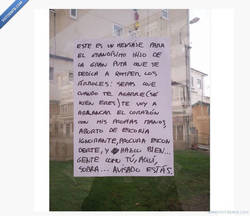 ESTE ES UN MENSAJE PARA
EL GRANDÍSIMO HIJO DE
LA GRAN PUTA QUE SE
DEDICA A ROMPER LOS
ÁRBOLES: SEPAS QUE
CUANDO TE AGARRE (SE
BIEN ERES) TE VOY A
ARRANCAR EL CORAZÓN
CON MIS PROPIAS MANOS,
ABORTO DE ESCORIA
IGNORANTE, PROCURA ESCON
DERTE, Y HAZLO BIEN...
GENTE COMO TÚ, AQUÍ,
SOBRA... AVISADO ESTÁS.